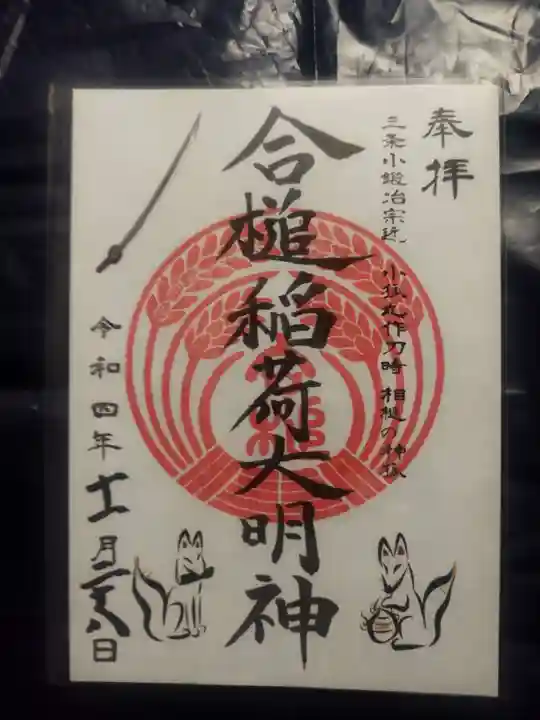 奉拝
三条小鍛冶宗近 小狐丸作刀時 相槌の神狐
合槌稲荷大明神
令和四年十一月二十八日